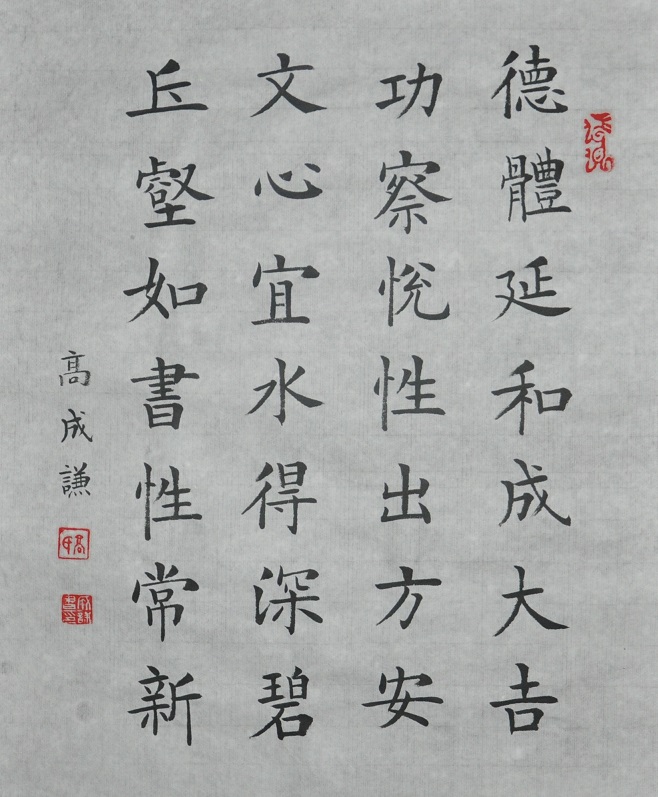 德體延和成大吉
功察悅性出方安
文心宜水得深碧
丘壑如書性常新
高成謙